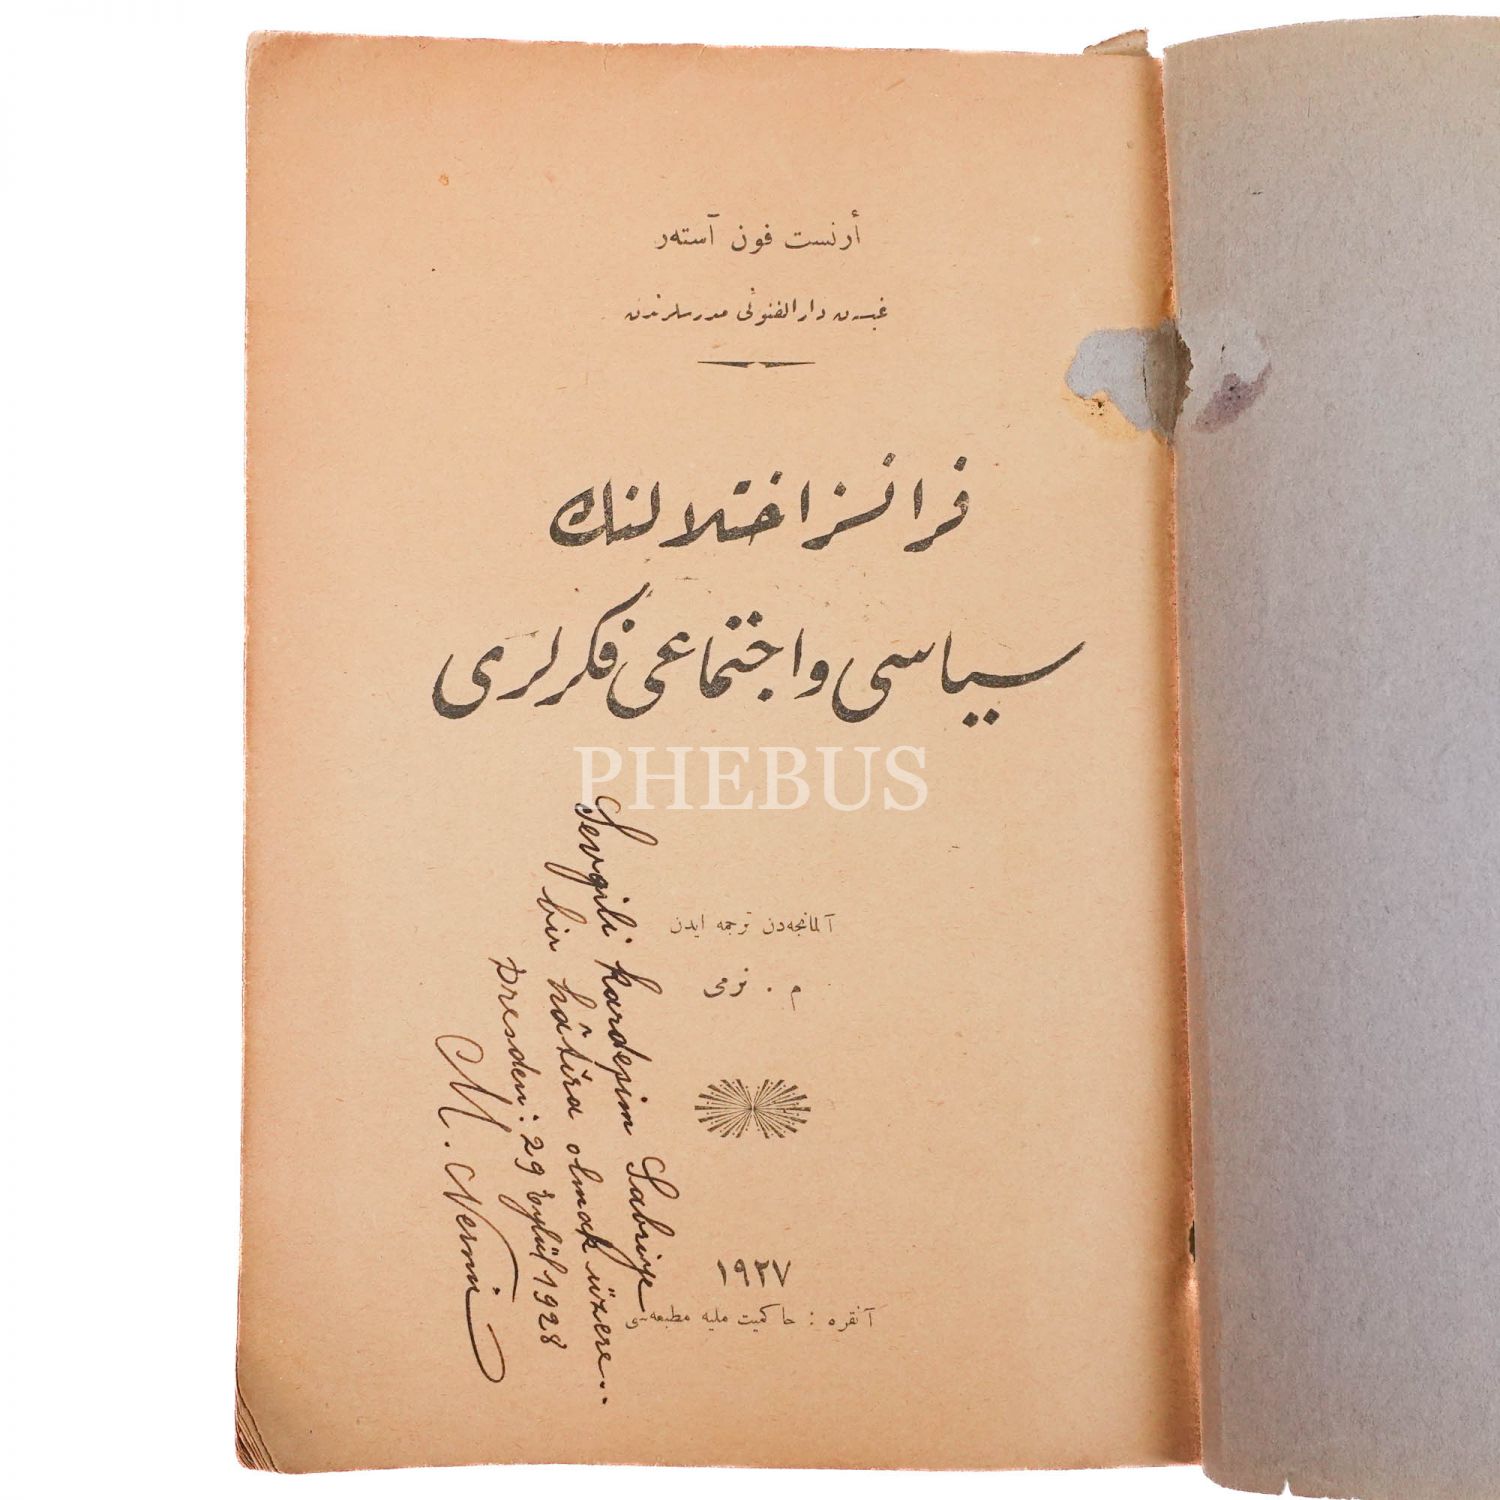 أرنست فون آستەر
غيسەن دارالفنونی مدرسلرندن
فرانسز اختلالنك
سیاسی و اجتماعی فکرلری
PHEBUS
آلمانجەدن ترجمه ایدن
م . نرمی
١٩٢٧
آنقره : حاكمیت ملیه مطبعەسی
Sevgili kardeşim Sabriye
bir hâtıra olmak üzere..
Dresden: 29 Eylûl 1928
M. Nermi